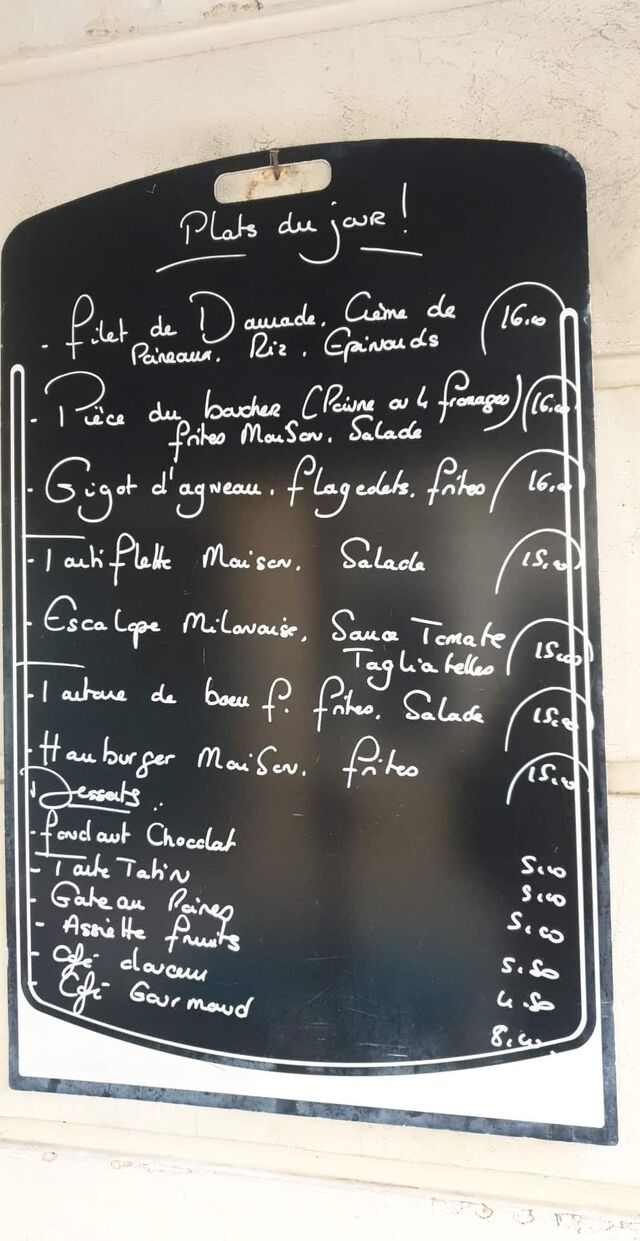 Plats du jour !
- filet de Daurade. Crème de (16.00
Poireaux. Riz. Epinards
- Pièce du boucher (Poivre ou 4 fromages) (16.00
frites Maison. Salade
- Gigot d'agneau. flageolets. frites (16.00
- Tartiflette Maison. Salade (15.00
- Escalope Milanaise. Sauce Tomate
Tagliatelles (15.00
- Tartare de boeuf. frites. Salade (15.00
- Hamburger Maison. frites (15.00
Desserts :
- fondant Chocolat 5.00
- Tarte Tatin 5.00
- Gateau Poires 5.00
- Assiette fruits 5.50
- Café douceur 4.50
- Café Gourmand 8.00